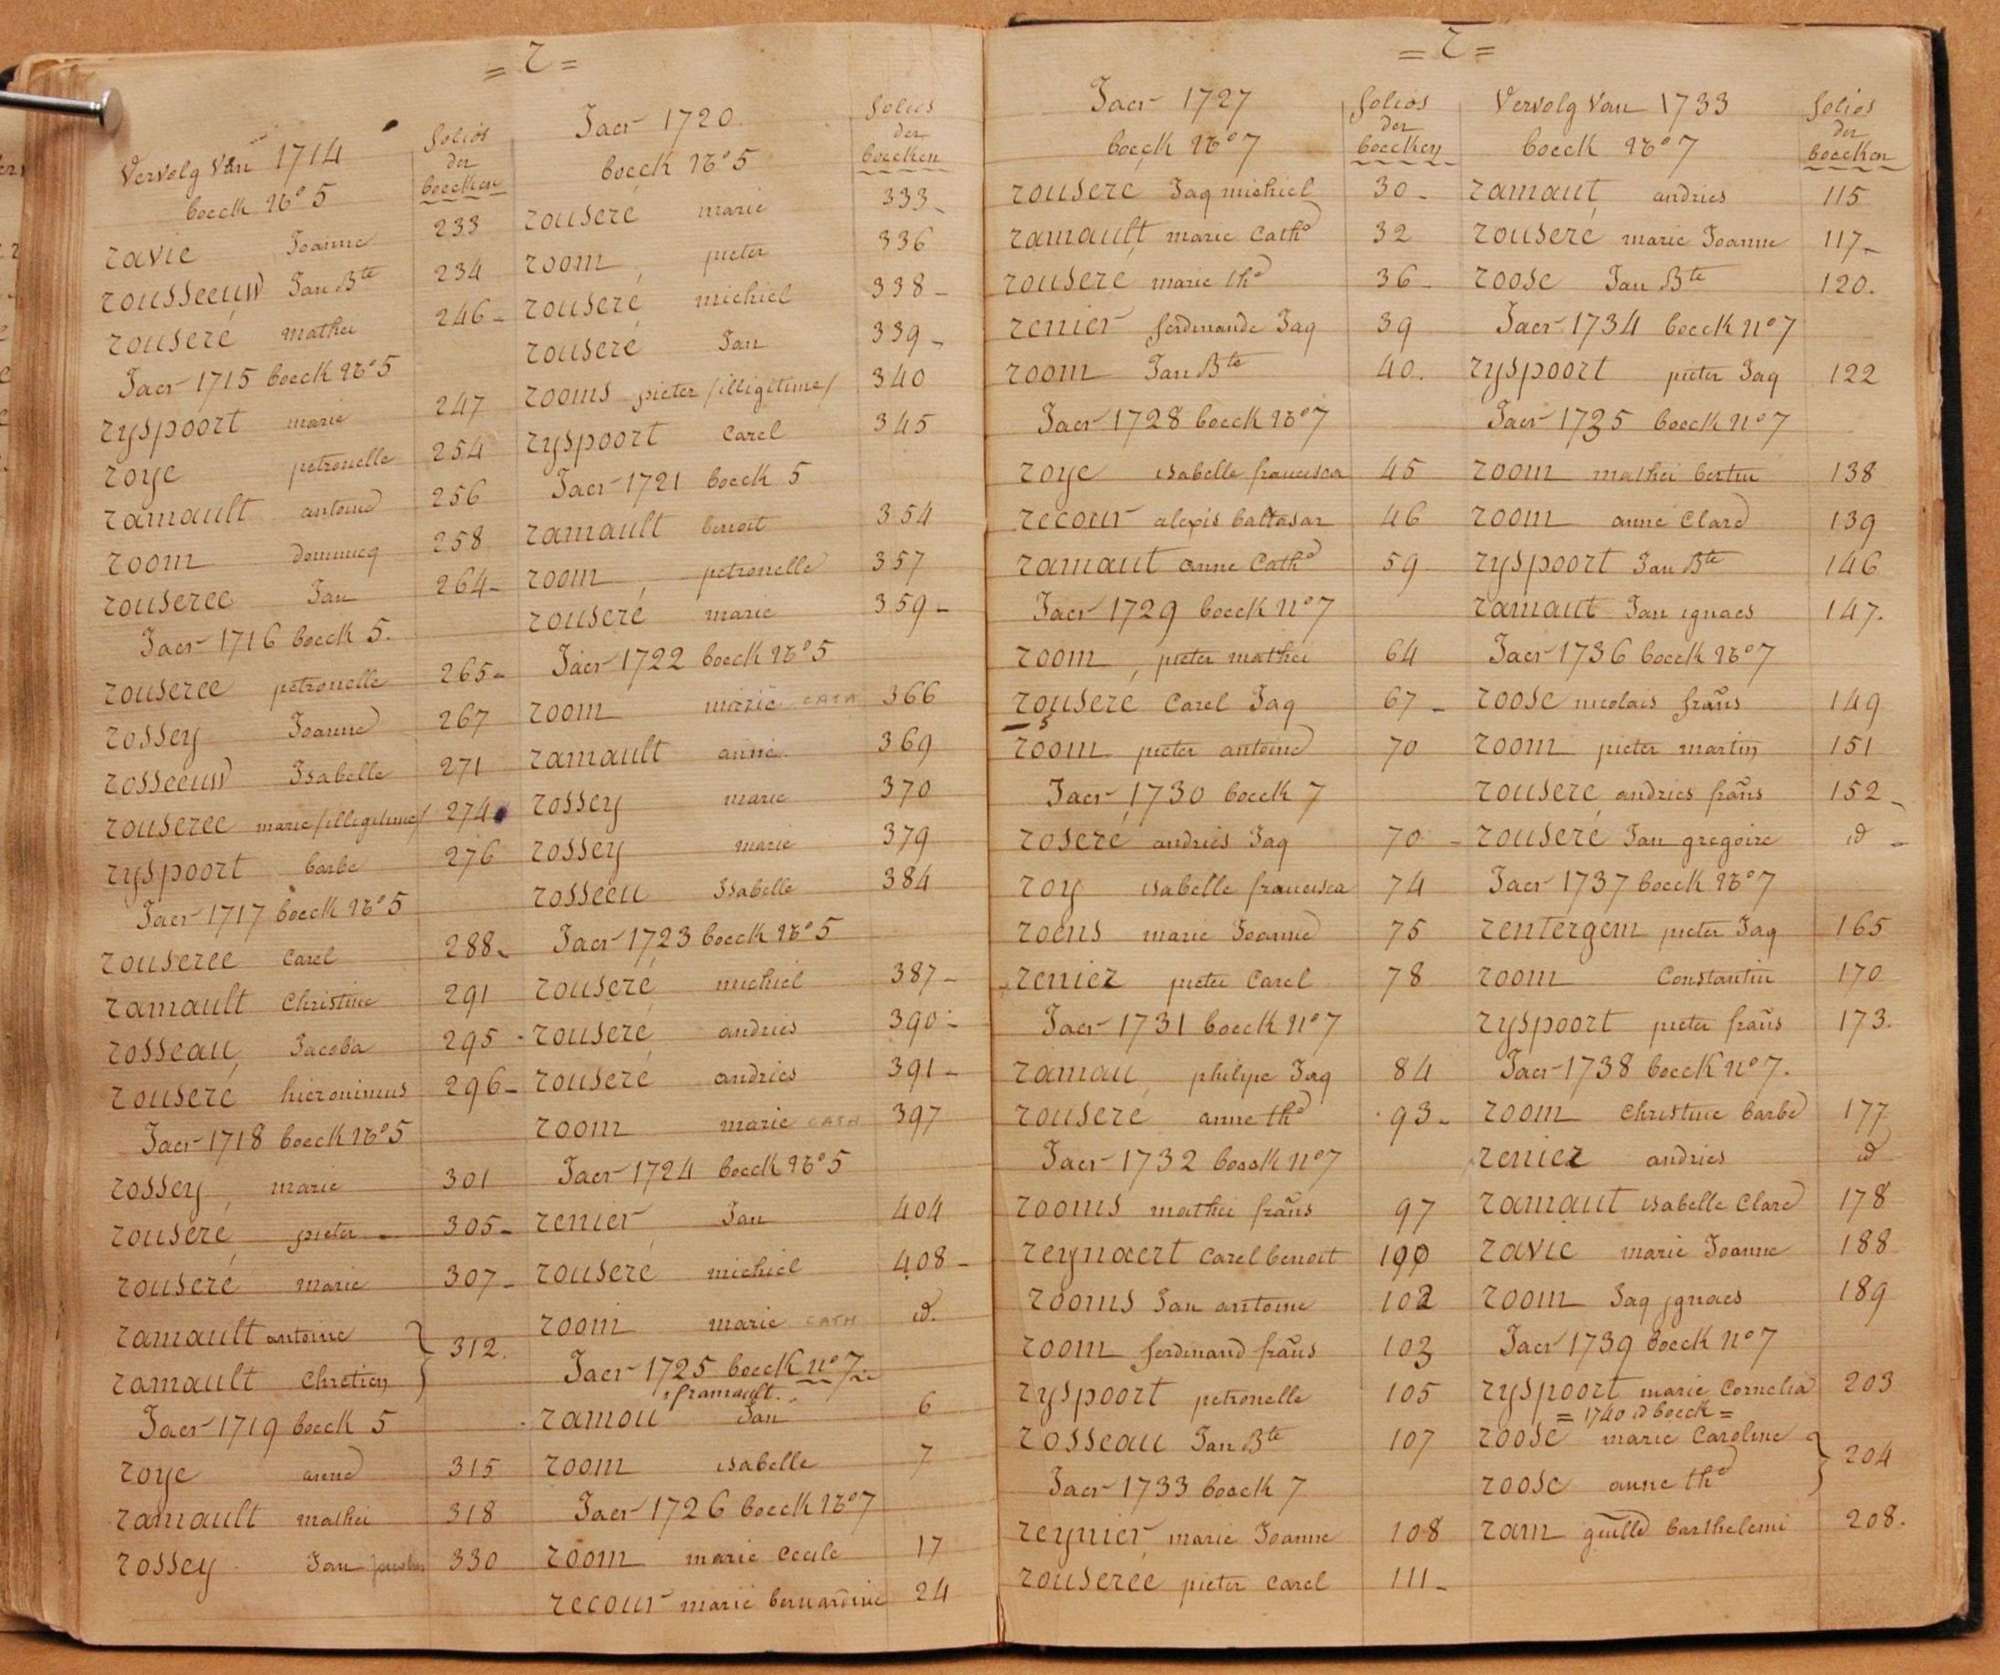 = R =
Vervolg Van 1714
boeck No 5
folios
der
boecken
ravie Joanne 233
rousseeuw Jan Bte 234
rouseré mathei 246
Jaer 1715 boeck No 5
ryspoort marie 247
roye petronelle 254
ramault antoine 256
room dominicq 258
rouseree Jan 264
Jaer 1716 boeck 5.
rouseree petronelle 265
rossey Joanne 267
rosseeuw Isabelle 271
rouseree marie /illigitime/ 274
ryspoort barbe 276
Jaer 1717 boeck No 5
rouseree Carel 288
ramault Christine 291
rosseau Jacoba 295
rouseré hieronimus 296
Jaer 1718 boeck No 5
rossey marie 301
rouseré pieter 305
rouseré marie 307
ramault antoine
ramault Chretien } 312.
Jaer 1719 boeck 5
roye anne 315
ramault mathei 318
rossey Jan 330
Jaer 1720
boeck No 5
folios
der
boecken
rouseré marie 333
room pieter 336
rouseré michiel 338
rouseré Jan 339
rooms pieter /illigitime/ 340
ryspoort Carel 345
Jaer 1721 boeck 5
ramault benoit 354
room petronelle 357
rouseré marie 359
Jaer 1722 boeck No 5
room marie CATH 366
ramault anne 369
rossey marie 370
rossey marie 379
rosseeu Isabelle 384
Jaer 1723 boeck No 5
rouseré michiel 387
rouseré andries 390
rouseré andries 391
room marie CATH 397
Jaer 1724 boeck No 5
renier Jan 404
rouseré michiel 408
room marie CATH id.
Jaer 1725 boeck no 7
ramault
ramou Jan 6
room isabelle 7
Jaer 1726 boeck No 7
room marie Cecile 17
recour marie bernardine 24
= R =
Jaer 1727
boeck No 7
folios
der
boecken
rouseré Jaq michiel 30
ramault marie Cathe 32
rouseré marie the 36
renier ferdinande Jaq 39
room Jan Bte 40.
Jaer 1728 boeck No 7
roye isabelle francisca 45
recour alexis baltasar 46
ramaut anne Cathe 59
Jaer 1729 boeck no 7
room pieter mathei 64
rouseré Carel Jaq 67
room pieter antoine 70
Jaer 1730 boeck 7
roseré andries Jaq 70
roy isabelle francisca 74
roens marie Joanne 75
renier pieter Carel 78
Jaer 1731 boeck no 7
ramau philipe Jaq 84
rouseré anne the 93
Jaer 1732 boeck no 7
rooms mathei frans 97
reynaert Carel benoit 100
rooms Jan antoine 102
room ferdinand frans 103
ryspoort petronelle 105
rosseau Jan Bte 107
Jaer 1733 boeck 7
reynier marie Joanne 108
rouserée pieter Carel 111
Vervolg Van 1733
boeck No 7
folios
der
boecken
ramaut andries 115
rouseré marie Joanne 117
roose Jan Bte 120.
Jaer 1734 boeck no 7
ryspoort pieter Jaq 122
Jaer 1735 boeck no 7
room mathei bertin 138
room anne Clare 139
ryspoort Jan Bte 146
ramaut Jan ignaes 147.
Jaer 1736 boeck No 7
roose nicolais frans 149
room pieter martin 151
rouseré andries frans 152
rouseré Jan gregoire id
Jaer 1737 boeck No 7
rentergem pieter Jaq 165
room Constantin 170
ryspoort pieter frans 173.
Jaer 1738 boeck no 7.
room Christine barbe 177
renier andries id
ramaut isabelle Clare 178
ravie marie Joanne 188
room Jaq ignaes 189
Jaer 1739 boeck no 7
ryspoort marie Cornelia 203
= 1740 id boeck =
roose marie Caroline
roose anne the } 204
ram guille barthelemi 208.